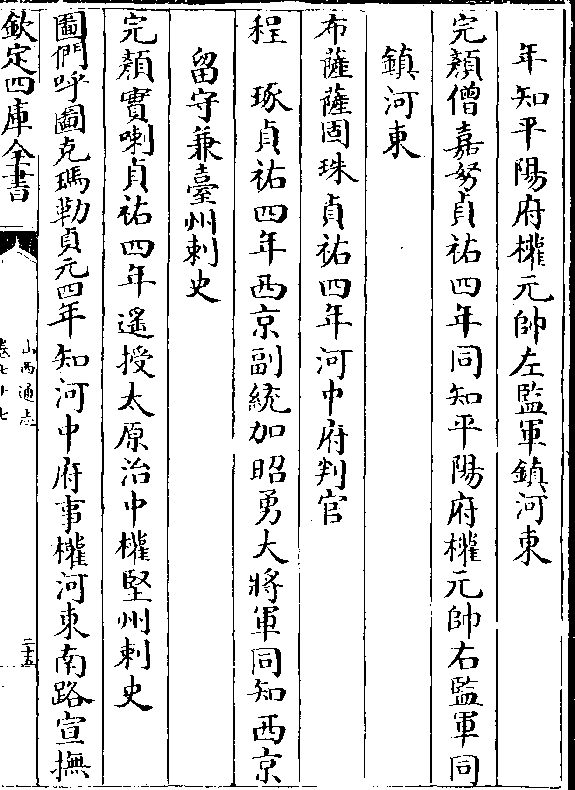 年知平陽府權元帥左監軍鎮河東
完顔僧嘉努貞祐四年同知平陽府權元帥右監軍同
鎮河東
布薩薩固珠貞祐四年河中府判官
程　琢貞祐四年西京副統加昭勇大將軍同知西京
留守兼臺州刺史
完顔實喇貞祐四年遙授太原治中權堅州刺史
圖們呼圖克瑪勒貞元四年知河中府事權河東南路宣撫
欽定四庫全書
山西通志
卷七十七
二十五